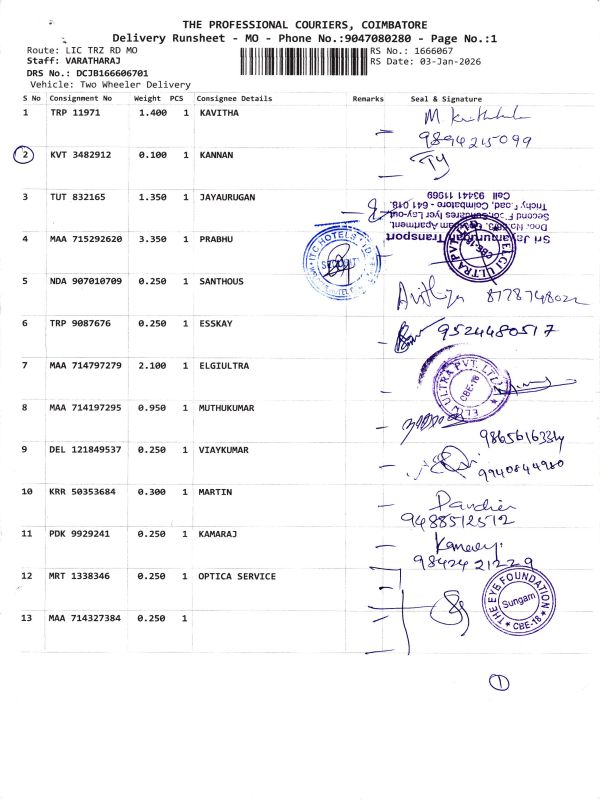 THE PROFESSIONAL COURIERS, COIMBATORE
Delivery Runsheet - MO - Phone No.:9047080280 - Page No.:1
Route: LIC TRZ RD MO
RS No.: 1666067
Staff: VARATHARAJ
RS Date: 03-Jan-2026
DRS No.: DCJB166606701
Vehicle: Two Wheeler Delivery
S No Consignment No Weight PCS Consignee Details Remarks Seal & Signature
1 TRP 11971 1.400 1 KAVITHA
9894215099
2 KVT 3482912 0.100 1 KANNAN
3 TUT 832165 1.350 1 JAYAURUGAN
Sri Jayamurugan Transport
Second Floor, Sundares Iyer Lay-out
Trichy Road, Coimbatore - 641 018.
Cell 93441 11969
4 MAA 715292620 3.350 1 PRABHU
ITC HOTELS
ELGI ULTRA PVT. LTD
CBE-18
5 NDA 907010709 0.250 1 SANTHOUS
6 TRP 9087676 0.250 1 ESSKAY
9524480517
7 MAA 714797279 2.100 1 ELGIULTRA
ELGI ULTRA PVT. LTD
CBE-18
8 MAA 714197295 0.950 1 MUTHUKUMAR
9 DEL 121849537 0.250 1 VIAYKUMAR
9940844980
10 KRR 50353684 0.300 1 MARTIN
9488512512
11 PDK 9929241 0.250 1 KAMARAJ
9842421229
12 MRT 1338346 0.250 1 OPTICA SERVICE
THE EYE FOUNDATION
Sungam
CBE-18
13 MAA 714327384 0.250 1
1